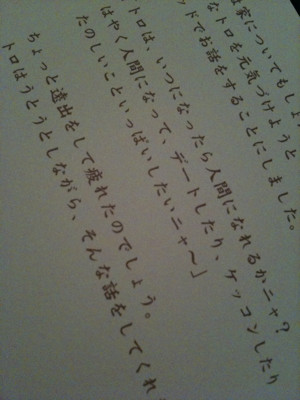 家についてもしょ
なトロを元気づけようと
ッドでお話をすることにしました。
トロは、いつになったら人間になれるかニャ?
はやく人間になって、デートしたり、ケッコンしたり
たのしいこといっぱいしたいニャ〜」
ちょっと遠出をして疲れたのでしょう。
トロはうとうとしながら、そんな話をしてくれ